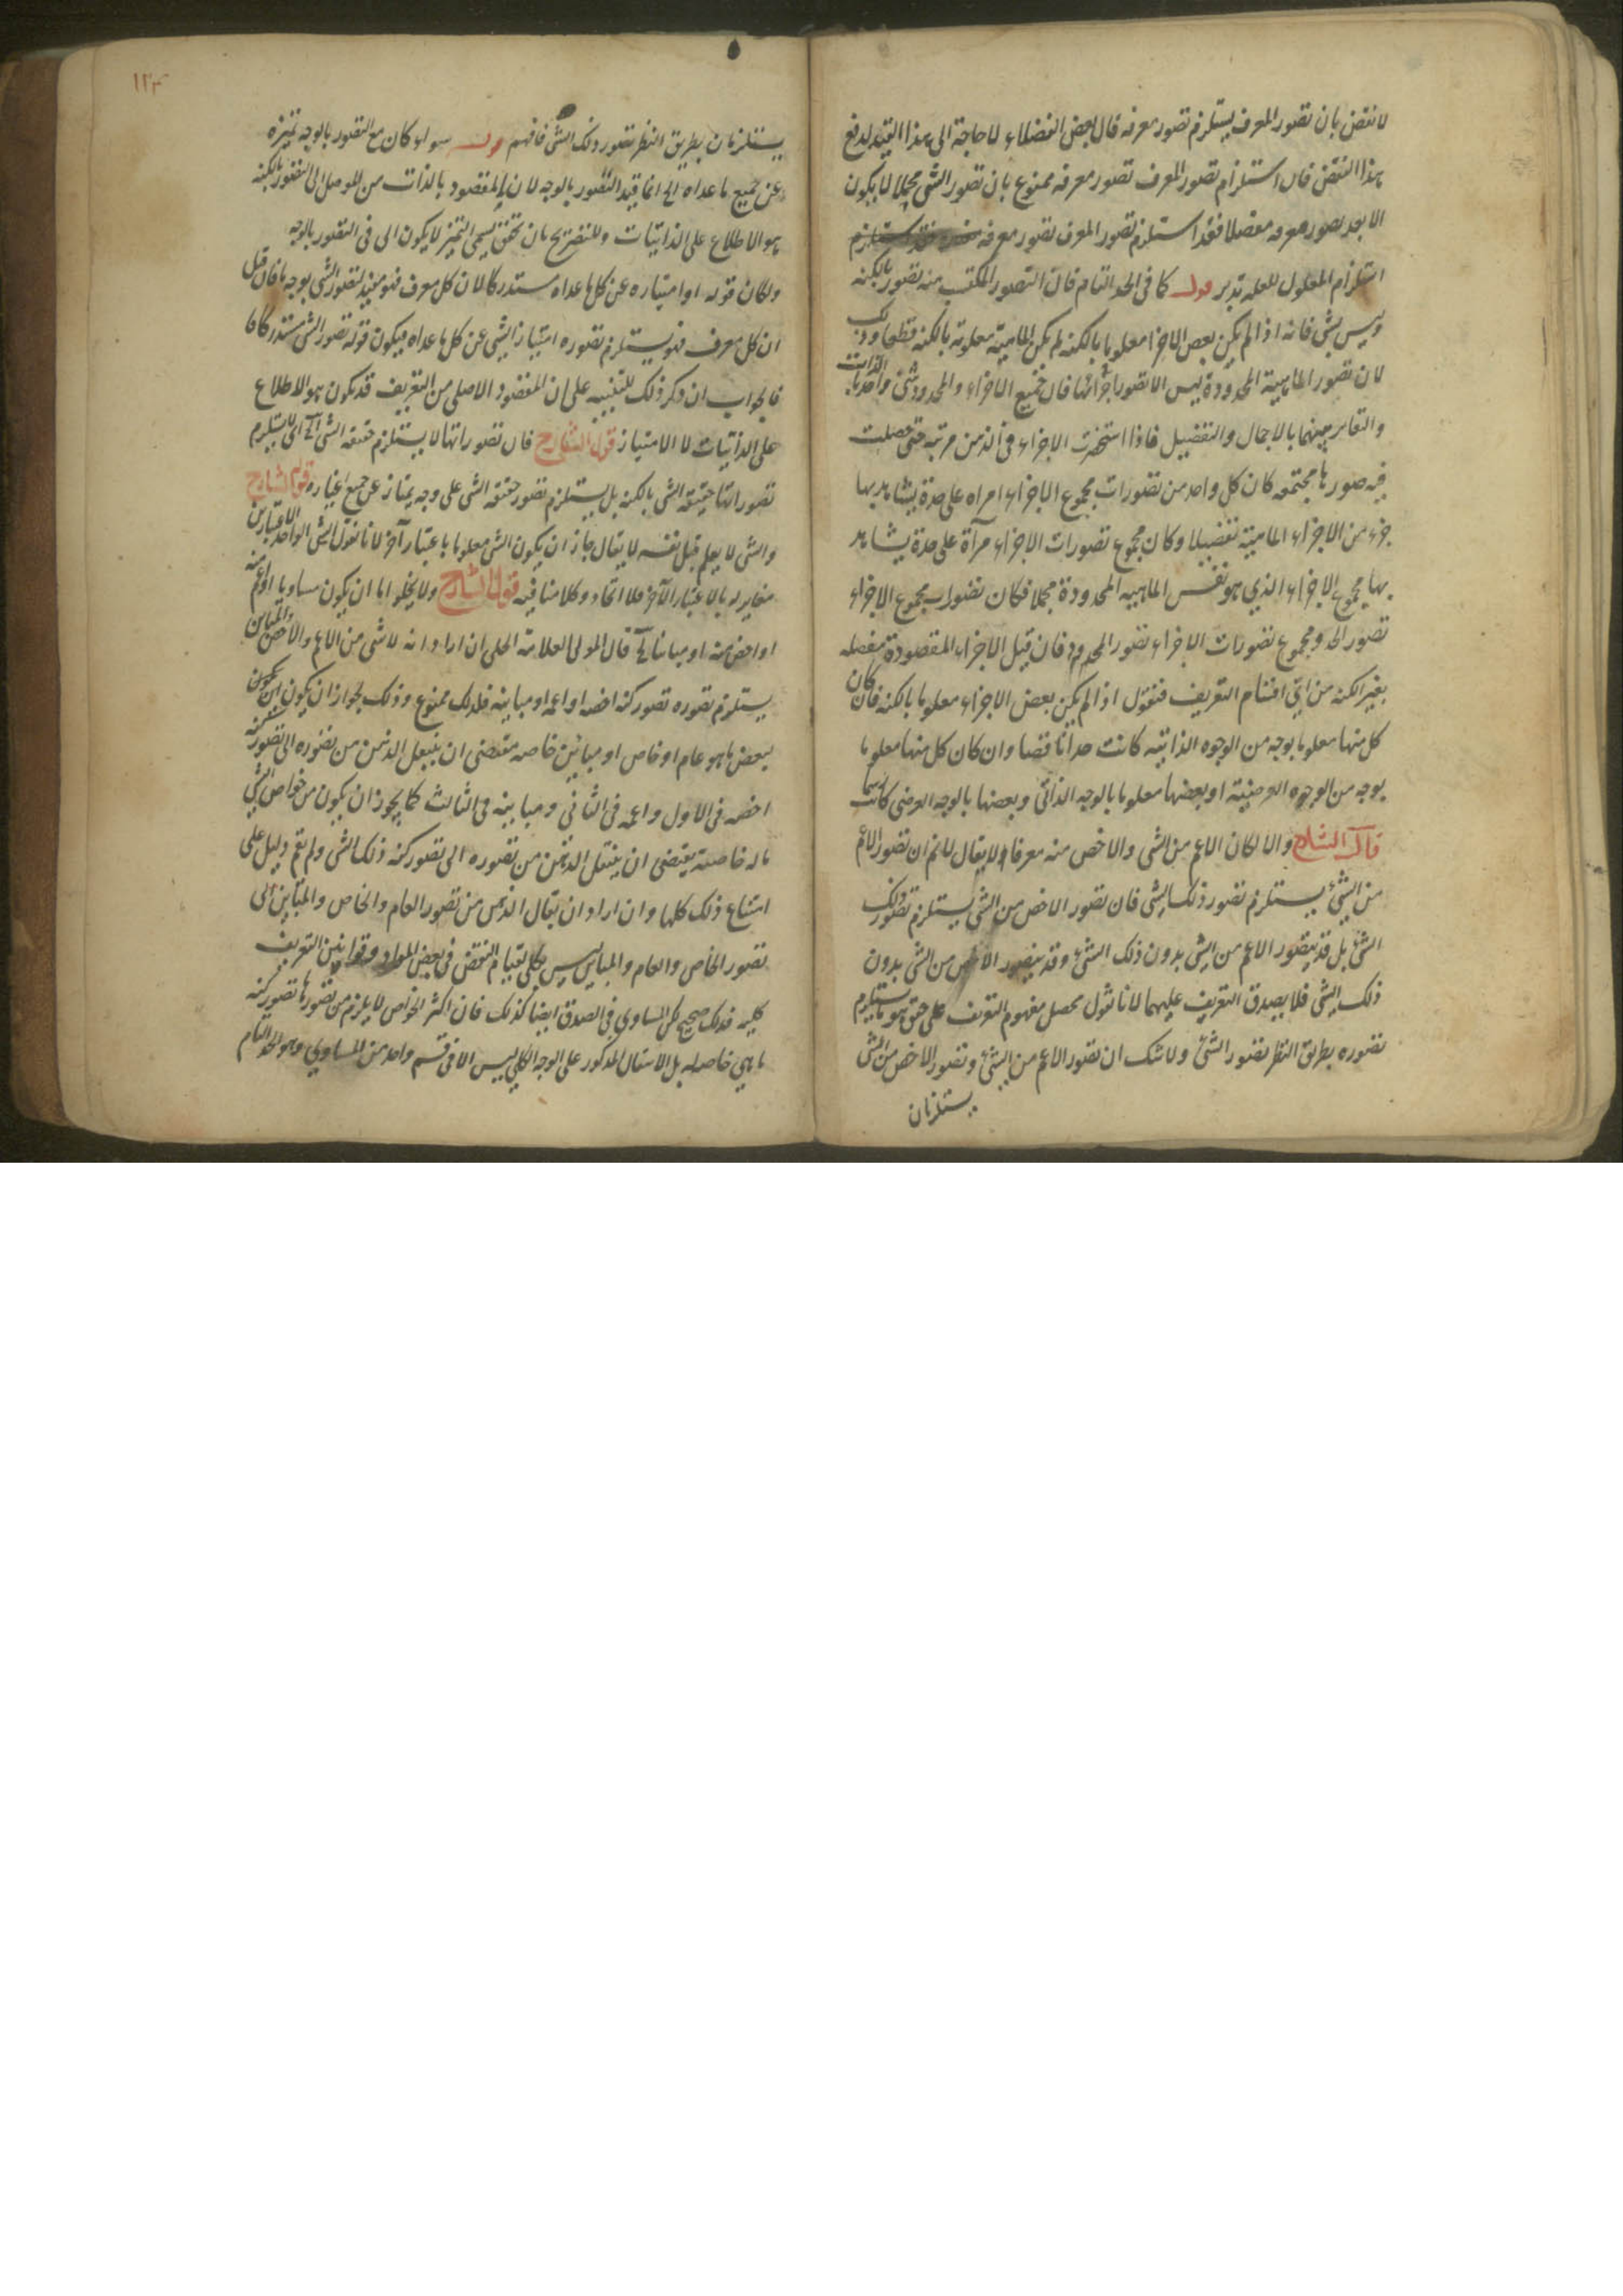 لانتقض بان تصور المعرف يستلزم تصور معرفه قال بعض الفضلاء لا حاجة الى هذا القيد لدفع
هذا النقض فان استلزام تصور المعرف تصور معرفه ممنوع بان تصور الشئ مجملا لا يكون
الا بعد تصور معرفه مفصلا فقد استلزم تصور المعرف تصور معرفه
استلزام المعلول للعلة تدبر قوله كما فى الحد التام فان التصور المكتسب منه تصور بالكنه
وليس بشئ فانه اذا لم يكن بعض الاجزاء معلوما بالكنه لم يكن الماهية معلومة بالكنه قطعا وذلك
لان تصور الماهية المحدودة ليس الا تصور اجزائها فان جميع الاجزاء والمحدود شئ واحد بالذات
والتغاير بينهما بالاجمال والتفصيل فاذا استحضرت الاجزاء فى الذهن مرتبة حتى حصلت
فيه صورها مجتمعة كان كل واحد من تصورات مجموع الاجزاء مراة على حدة يشاهد بها
جزء من الاجزاء الماهية تفصيلا وكان مجموع تصورات الاجزاء مرآة على حدة يشاهد
بها مجموع الاجزاء الذي هو نفس الماهية المحدودة مجملا فكان تصورات مجموع الاجزاء
تصور الحد ومجموع تصورات الاجزاء تصور المحدود فان قيل الاجزاء المقصودة مفصلة
بغير الكنه من اي اقسام التعريف فنقول اذا لم يكن بعض الاجزاء معلوما بالكنه فان كان
كل منها معلوما بوجه من الوجوه الذاتية كانت حدا ناقصا وان كان كل منها معلوما
بوجه من الوجوه العرضية او بعضها معلوما بالوجه الذاتى وبعضها بالوجه العرضى كانت رسما
قال الشارح والا لكان الاعم من الشى والاخص منه معرفا لا يقال لا نم ان تصور الاعم
من الشئ يستلزم تصور ذلك الشى فان تصور الاخص من الشى يستلزم تصور ذلك
الشئ بل قد يتصور الاعم من الشى بدون ذلك الشئ وقد يتصور الاخص من الشى بدون
ذلك الشئ فلا يصدق التعريف عليهما لانا نقول محصل مفهوم التعريف على حق هو ما يستلزم
تصوره بطريق النظر تصور الشئ ولا شك ان تصور الاعم من الشئ وتصور الاخص من الشى
يستلزمان
١٢٣
يستلزمان بطريق النظر تصور ذلك الشئ فافهم قوله سواء كان مع التصور بالوجه تميزه
عن جميع ما عداه الى انما قيد التصور بالوجه لان المقصود بالذات من الموصل الى التصور بالكنه
هو الاطلاع على الذاتيات وللتصريح بان تحقق يسمى التميز لا يكون الى فى التصور بالوجه
ولكان قوله او امتيازه عن كل ما عداه مستدركا لان كل معرف فهو مفيد لتصور الشى بوجه ما فان قيل
ان كل معرف فهو يستلزم تصوره امتياز الشئ عن كل ما عداه فيكون قوله تصور الشى مستدركا
فالجواب ان ذكر ذلك للتنبيه على ان المقصود الاصلى من التعريف قد يكون هو الاطلاع
على الذاتيات لا الامتياز قول الشارح فان تصوراتها لا يستلزم حقيقة الشئ الخ اى لا يستلزم
تصوراتها حقيقة الشى بالكنه بل يستلزم تصور حقيقة الشى على وجه يمتاز عن جميع اغياره قول الشارح
والشى لا يعلم قبل نفسه لا يقال جاز ان يكون الشى معلوما باعتبار آخر لانا نقول الشى الواحد باعتبارين
مغاير له بالاعتبار الآخر فلا اتحاد وكلامنا فيه قول الشارح ولا يخلو اما ان يكون مساويا او اعم منه
او اخص منه او مباينا الخ قال المولى العلامة الحلى ان اراد انه لا شى من الاعم والاخص والمباين
يستلزم تصوره تصور كنه اخصه او اعمه او مباينه فلذلك ممنوع وذلك لجواز ان يكون
لبعض ما هو عام او خاص او مباين خاصه مقتضى ان ينتقل الذهن من تصوره الى تصور كنه
اخصه فى الاول واعمه فى الثانى ومباينه فى الثالث كما يجوز ان يكون من خواص الشئ
ما له خاصية يقتضى ان ينتقل الذهن من تصوره الى تصور كنه ذلك الشى ولم يقم دليل على
امتناع ذلك كلها وان اراد ان يقال الذهن من تصور العام والخاص والمباين الى
تصور الخاص والعام والمباين ليس بكلى لقيام النقض فى بعض المواد وقوانين التعريف
كلية فذلك صحيح لكن المساوي فى الصدق ايضا كذلك فان اكثر الخواص لا يلزم من تصورها تصور كنه
ما هى خاصه له بل الانتقال المذكور على الوجه الكلى ليس الا فى قسم واحد من المساوي وهو الحد التام